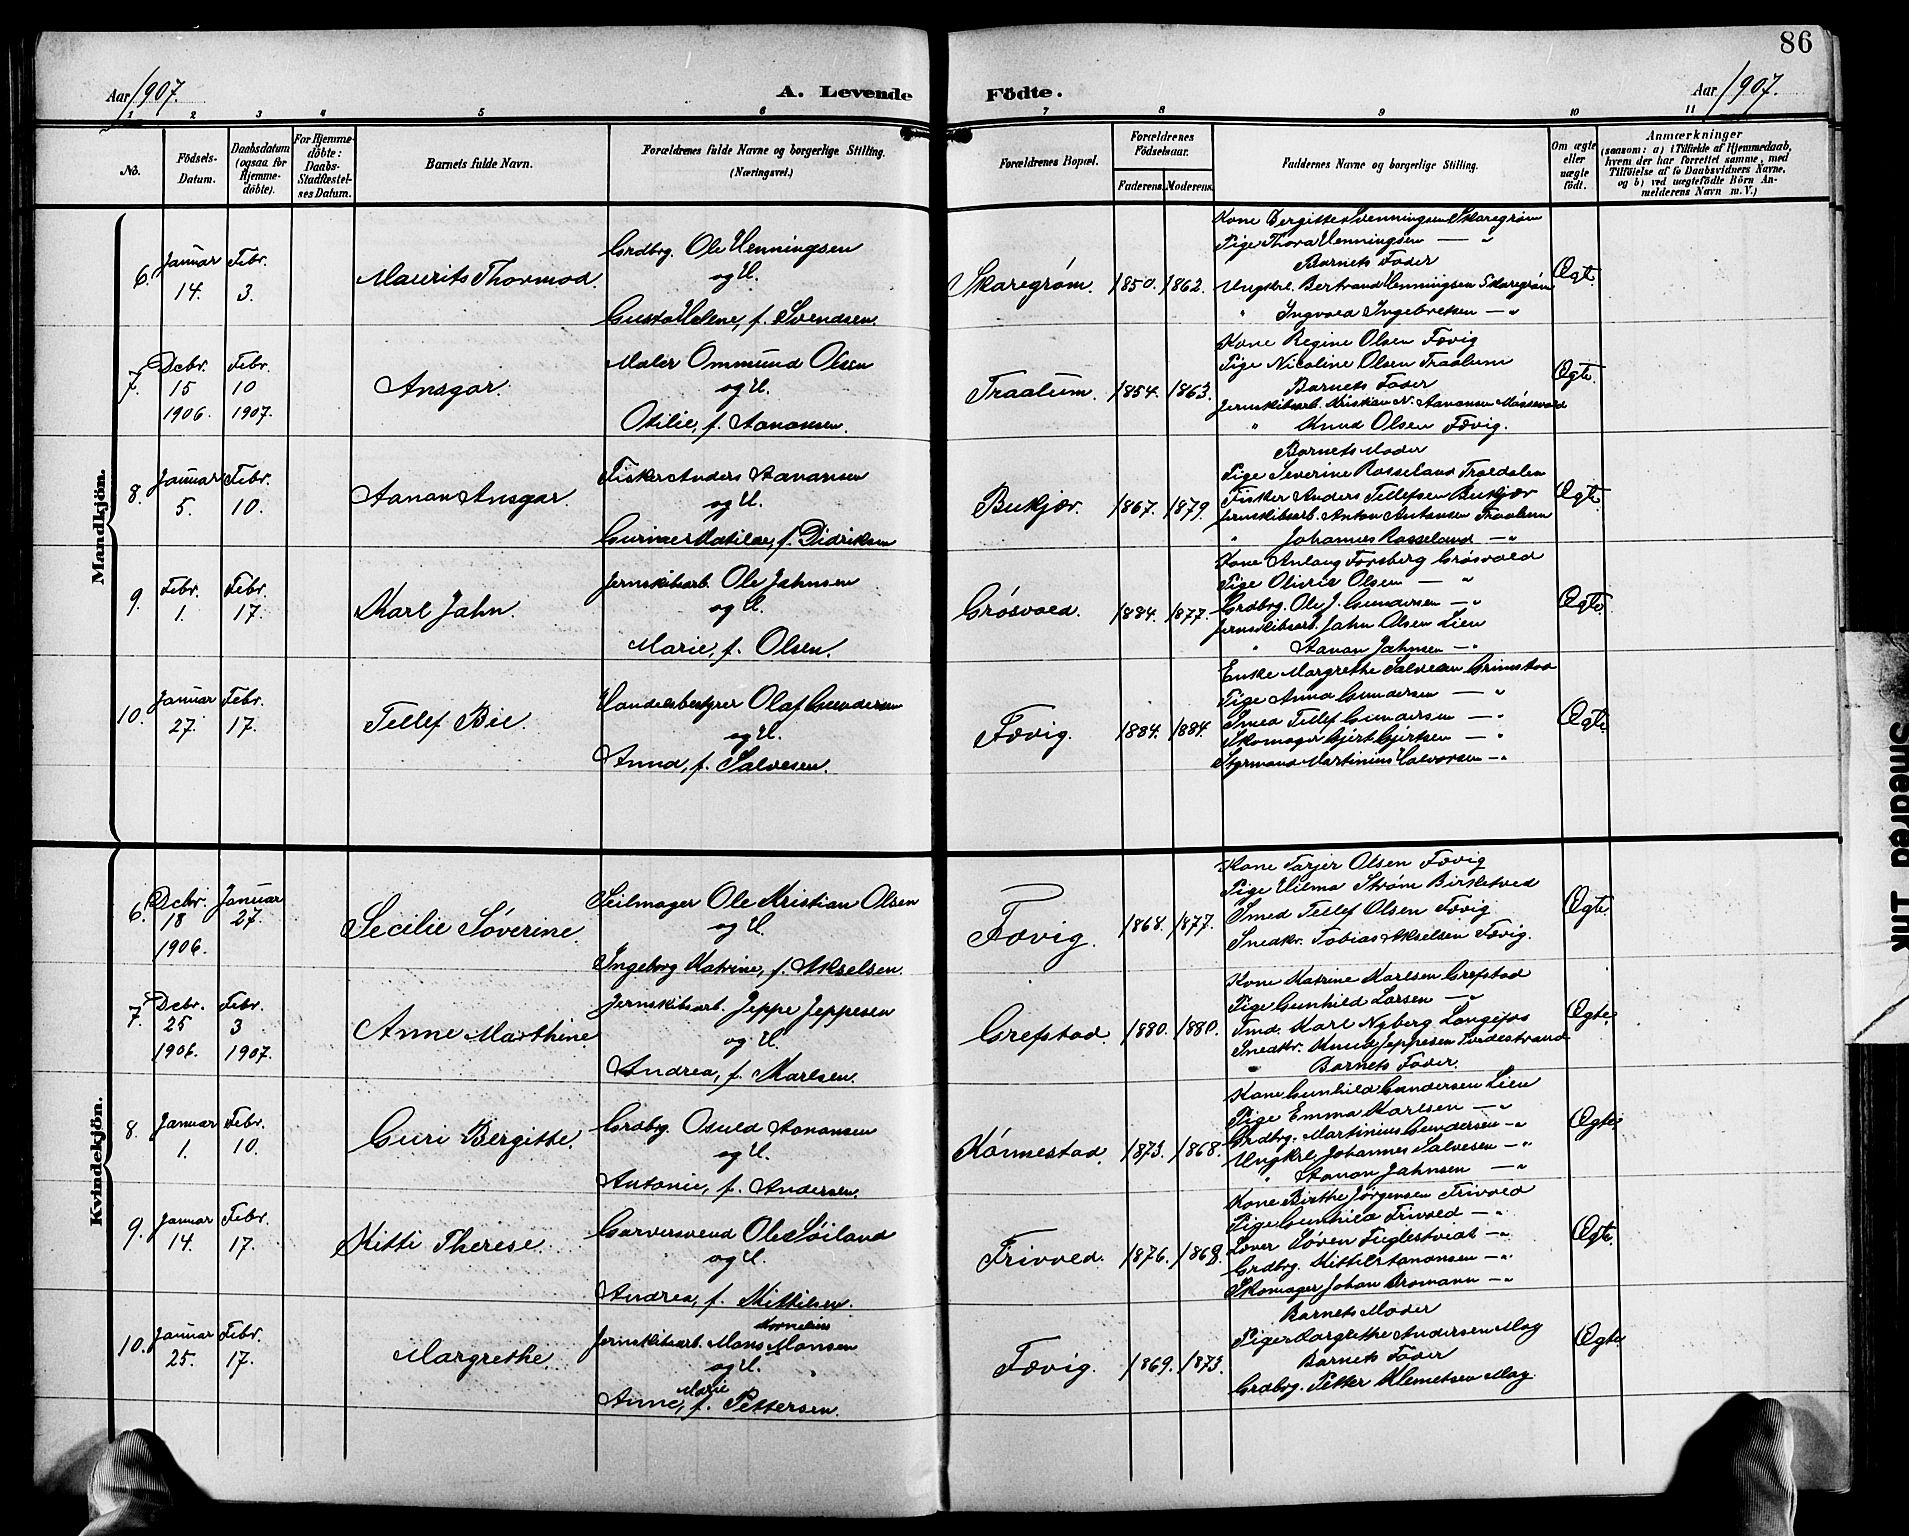 86
Aar 1907.
A. Levende Födte.
Aar 1907.
1 2 3 4 5 6 7 8 9 10 11
No.
Födsels-Datum.
Daabsdatum (ogsaa for Hjemme-döbte).
For Hjemme-döbte: Daabs-Stadfæstel-ses Datum.
Barnets fulde Navn.
Forældrenes fulde Navne og borgerlige Stilling. (Næringsvei.)
Forældrenes Bopæl.
Forældrenes Födselsaar.
Faderens. Moderens.
Faddernes Navne og borgerlige Stilling.
Om ægte eller uægte födt.
Anmærkninger
(saasom: a) i Tilfælde af Hjemmedaab, hvem der har forrettet samme, med Tilföielse af to Daabsvidners Navne, og b) ved uægtefödte Börn An-melderens Navn m. V.)
Mandkjön.
6. Januar 14. Febr. 3. Maurits Thormod.
Grdbrg. Ole Henningsen
og H.
Gusta Helene, f. Svendsen.
Skaregrøm. 1850. 1862.
Kone Bergitte Svenningsen Skaregrøm
Pige Thora Henningsen — "
Barnets Fader
Ungkrl. Bertrand Henningsen Skaregrøm
" Ingvald Ingebretsen — "
Ægte.
7. Dcbr. 15 1906. Febr. 10 1907. Ansgar.
Maler Ommund Olsen
og H.
Otilie, f. Aanonsen.
Traalum. 1854. 1863.
Kone Regine Olsen Fævig
Pige Nicoline Olsen Traalum
Barnets Fader
Jernskibsarb. Kristian N. Aanonsen
" Knud Olsen Fævig.
Ægte.
8. Januar 5. Febr. 10. Aanon Ansgar.
Fisker Anders Aanansen
og H.
Gurine Matilde, f. Didriksen
Bukjær. 1867. 1879.
Barnets Moder
Pige Severine Rosseland Trældalen
Fisker Anders Tellefsen Bukjær
Jernskibsarb. Anton Antonsen Traalum
" Johannes Rosseland — "
Ægte.
9. Febr. 1. Febr. 17. Karl Jahn.
Jernskibsarb. Ole Jahnsen
og H.
Marie, f. Olsen.
Grøsvold. 1884. 1877.
Kone Anlaug Forsberg Grøsvold
Pige Olivie Olsen — "
Grdbrg. Ole J. Gundersen — "
Jernskibsarb. Jahn Olsen Lien
" Aanon Jahnsen — "
Ægte.
10. Januar 27. Febr. 17. Tellef Bie.
Handelsbestyrer Olaf Gundersen
og H.
Anna, f. Salvesen.
Fævig. 1884. 1884.
Enke Margrethe Salvesen Grimstad
Pige Anna Gundersen — "
Smed Tellef Gundersen — "
Skomager Gjert Gjertsen — "
Styrmand Martinius Salvesen — "
Ægte.
Kvindekjön.
6. Dcbr. 18 1906. Januar 27. Secilie Søverine.
Seilmager Ole Kristian Olsen
og H.
Ingeborg Katrine, f. Akselsen.
Fævig. 1868. 1877.
Kone Tarjer Olsen Fævig
Pige Hilma Strøm Birketved
Smed Tellef Olsen Fævig
Snedkr. Tobias Akselsen Fævig.
Ægte.
7. Dcbr. 25 1906. Febr. 3 1907. Anne Marthine.
Jernskibsarb. Jeppe Jeppesen
og H.
Andrea, f. Karlsen.
Grefstad. 1880. 1880.
Kone Katrine Karlsen Grefstad
Pige Gunhild Larsen — "
Tmd. Karl Nyberg Langefos
Snedkr. Knud Jeppesen Tvedestrand
" Barnets Fader.
Ægte.
8. Januar 1. Febr. 10. Guri Bergitte.
Grdbrg. Osuld Aanonsen
og H.
Antonie, f. Andersen.
Rønnestad. 1873. 1868.
Kone Gunhild Gundersen Lien
Pige Emma Karlsen — "
Grdbrg. Martinius Gundersen — "
Ungkrl. Johannes Salvesen — "
" Aanon Jahnsen — "
Ægte.
9. Januar 14. Febr. 17. Kitti Therese.
Garversvend Ole Søiland
og H.
Andrea, f. Kittilsen.
Frivold. 1876. 1868.
Kone Birthe Jørgensen Frivold
Pige Gunhild Frivold — "
Søren Fuglestvedt — "
Grdbrg. Kittil Aanonsen — "
Skomager Johan Bromann — "
Ægte.
10. Januar 25. Febr. 17. Margrethe.
Kornelius
Jernskibsarb. Mons Monsen
og H.
Marie
Anne, f. Pettersen.
Fævig. 1869. 1873.
Barnets Moder
Pige Margrethe Andersen Moy
Barnets Fader
Grdbrg. Petter Klemetsen Moy.
Ægte.
Smeared Ink